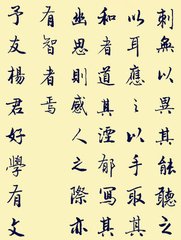 刺無以異其能聽之
以耳應之以手取其
和者道其湮郁寫其
幽思則感人之際亦
有智者焉
予友楊君好學有文